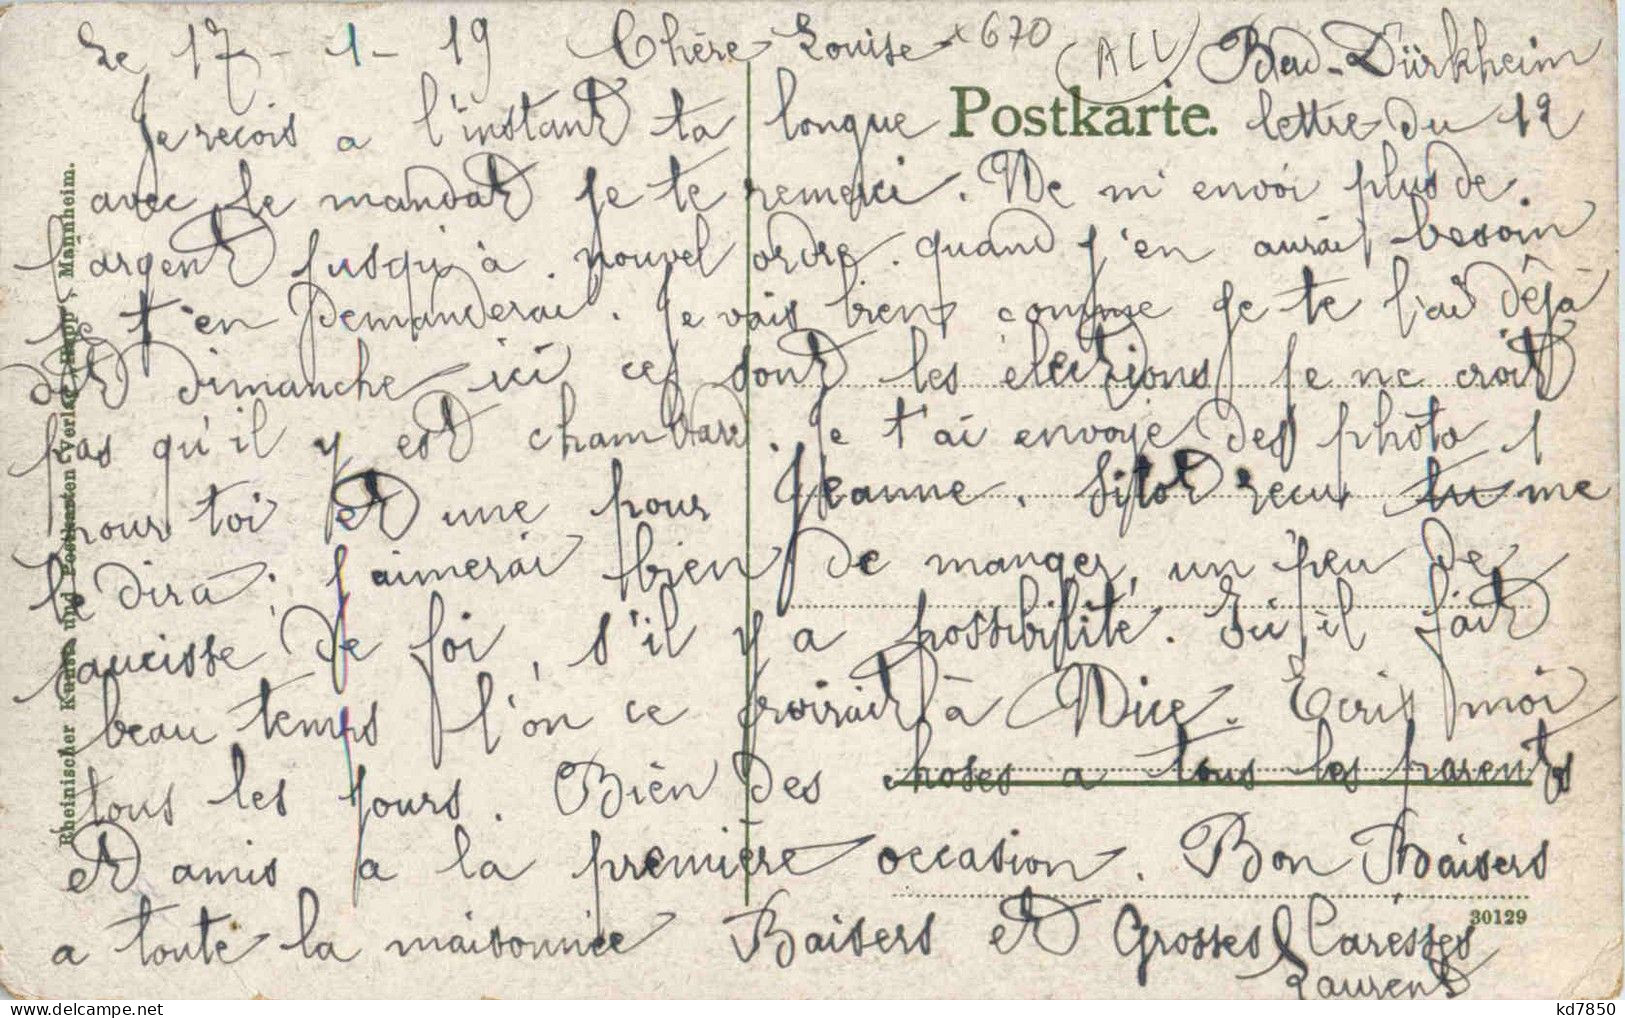 Le 17-1-19 Chère Louise x 670 (ALL) Bad-Dürkheim
Postkarte.
Je reçois a l'instant ta longue lettre du 12
avec le mandat je te remerci. Ne m'envoi plus de
l'argent jusqu'à nouvel ordre. quand j'en aurai besoin
je t'en demanderai. Je vais bien comme je te l'ai déjà
dit dimanche ici ce sont les élections je ne croit
pas qu'il y est chambard. Je t'ai envoye des photo 1
pour toi et une pour Jeanne. Sitot recu tu me
le dira; j'aimerai bien de manger un peu de
saucisse de foi, s'il y a possibilité. Ici il fait
beau temps l'on ce croirait à Nice. Ecris moi
tous les jours. Bien des choses a tous les parents
et amis a la première occasion. Bon Baisers
a toute la maisonnée Baisers et Grosses Caresses
Laurent
Rheinischer Kunst- und Postkarten-Verlag, Mannheim.
30129
kd7850